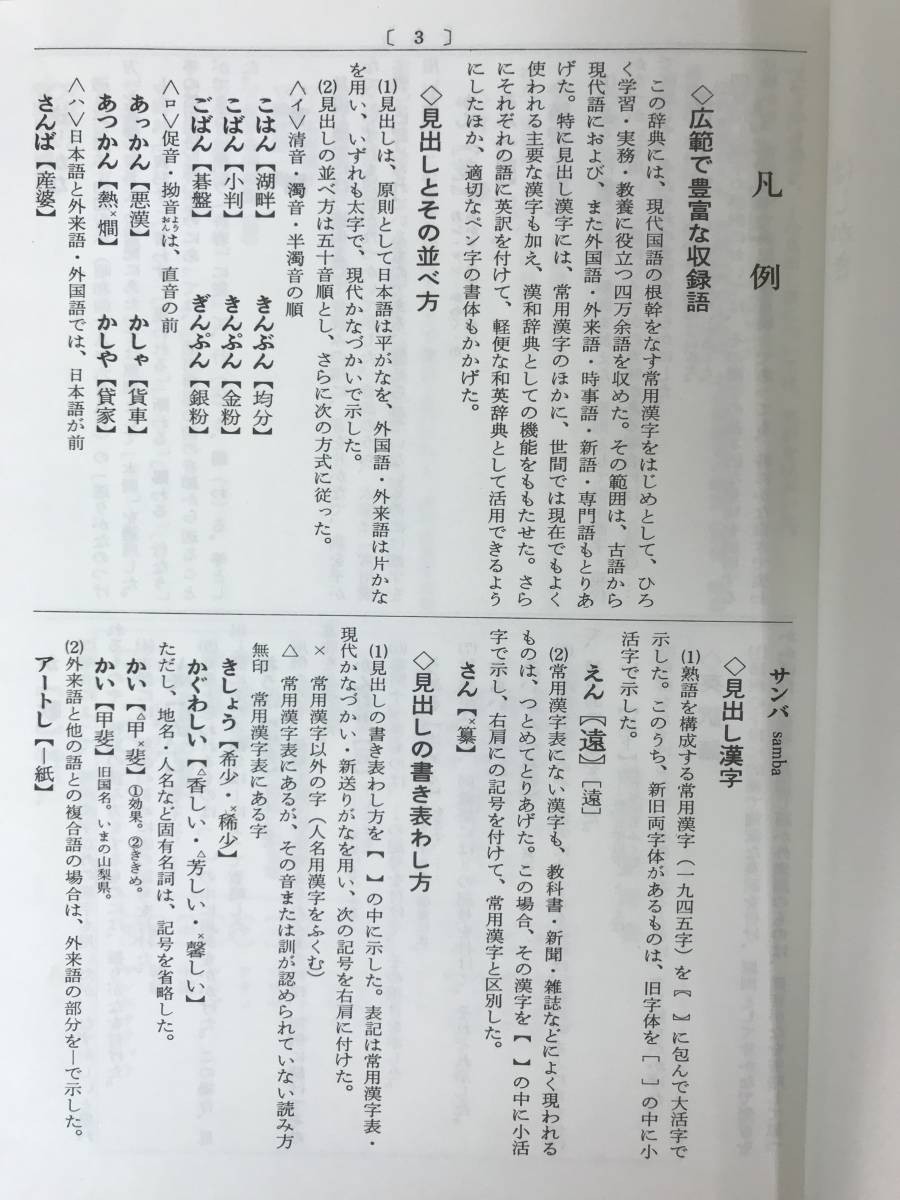 〔 3 〕
凡例
◇広範で豊富な収録語
この辞典には、現代国語の根幹をなす常用漢字をはじめとして、ひろ
く学習・実務・教養に役立つ四万余語を収めた。その範囲は、古語から
現代語におよび、また外国語・外来語・時事語・新語・専門語もとりあ
げた。特に見出し漢字には、常用漢字のほかに、世間では現在でもよく
使われる主要な漢字も加え、漢和辞典としての機能をももたせた。さら
にそれぞれの語に英訳を付けて、軽便な和英辞典として活用できるよう
にしたほか、適切なペン字の書体もかかげた。
◇見出しとその並べ方
⑴見出しは、原則として日本語は平がなを、外国語・外来語は片かな
を用い、いずれも太字で、現代かなづかいで示した。
⑵見出しの並べ方は五十音順とし、さらに次の方式に従った。
〈イ〉清音・濁音・半濁音の順
こはん【湖畔】 きんぶん【均分】
こばん【小判】 きんぷん【金粉】
ごばん【碁盤】 ぎんぷん【銀粉】
〈ロ〉促音・拗音ようおんは、直音の前
あっかん【悪漢】 かしゃ【貨車】
あつかん【熱×燗】 かしや【貸家】
〈ハ〉日本語と外来語・外国語では、日本語が前
さんば【産婆】
サンバ samba
◇見出し漢字
⑴熟語を構成する常用漢字（一九四五字）を〖 〗に包んで大活字で
示した。このうち、新旧両字体があるものは、旧字体を［ ］の中に小
活字で示した。
えん〖遠〗［遠］
⑵常用漢字表にない漢字も、教科書・新聞・雑誌などによく現われる
ものは、つとめてとりあげた。この場合、その漢字を【 】の中に小活
字で示し、右肩に×の記号を付けて、常用漢字と区別した。
さん【×纂】
◇見出しの書き表わし方
⑴見出しの書き表わし方を【 】の中に示した。表記は常用漢字表・
現代かなづかい・新送りがなを用い、次の記号を右肩に付けた。
× 常用漢字以外の字（人名用漢字をふくむ）
△ 常用漢字表にあるが、その音または訓が認められていない読み方
無印 常用漢字表にある字
きしょう【希少・×稀少】
かぐわしい【△香しい・△芳しい・×馨しい】
ただし、地名・人名など固有名詞は、記号を省略した。
かい【△甲×斐】①効果。②ききめ。
かい【甲斐】旧国名。いまの山梨県。
⑵外来語と他の語との複合語の場合は、外来語の部分を─で示した。
アートし【─紙】